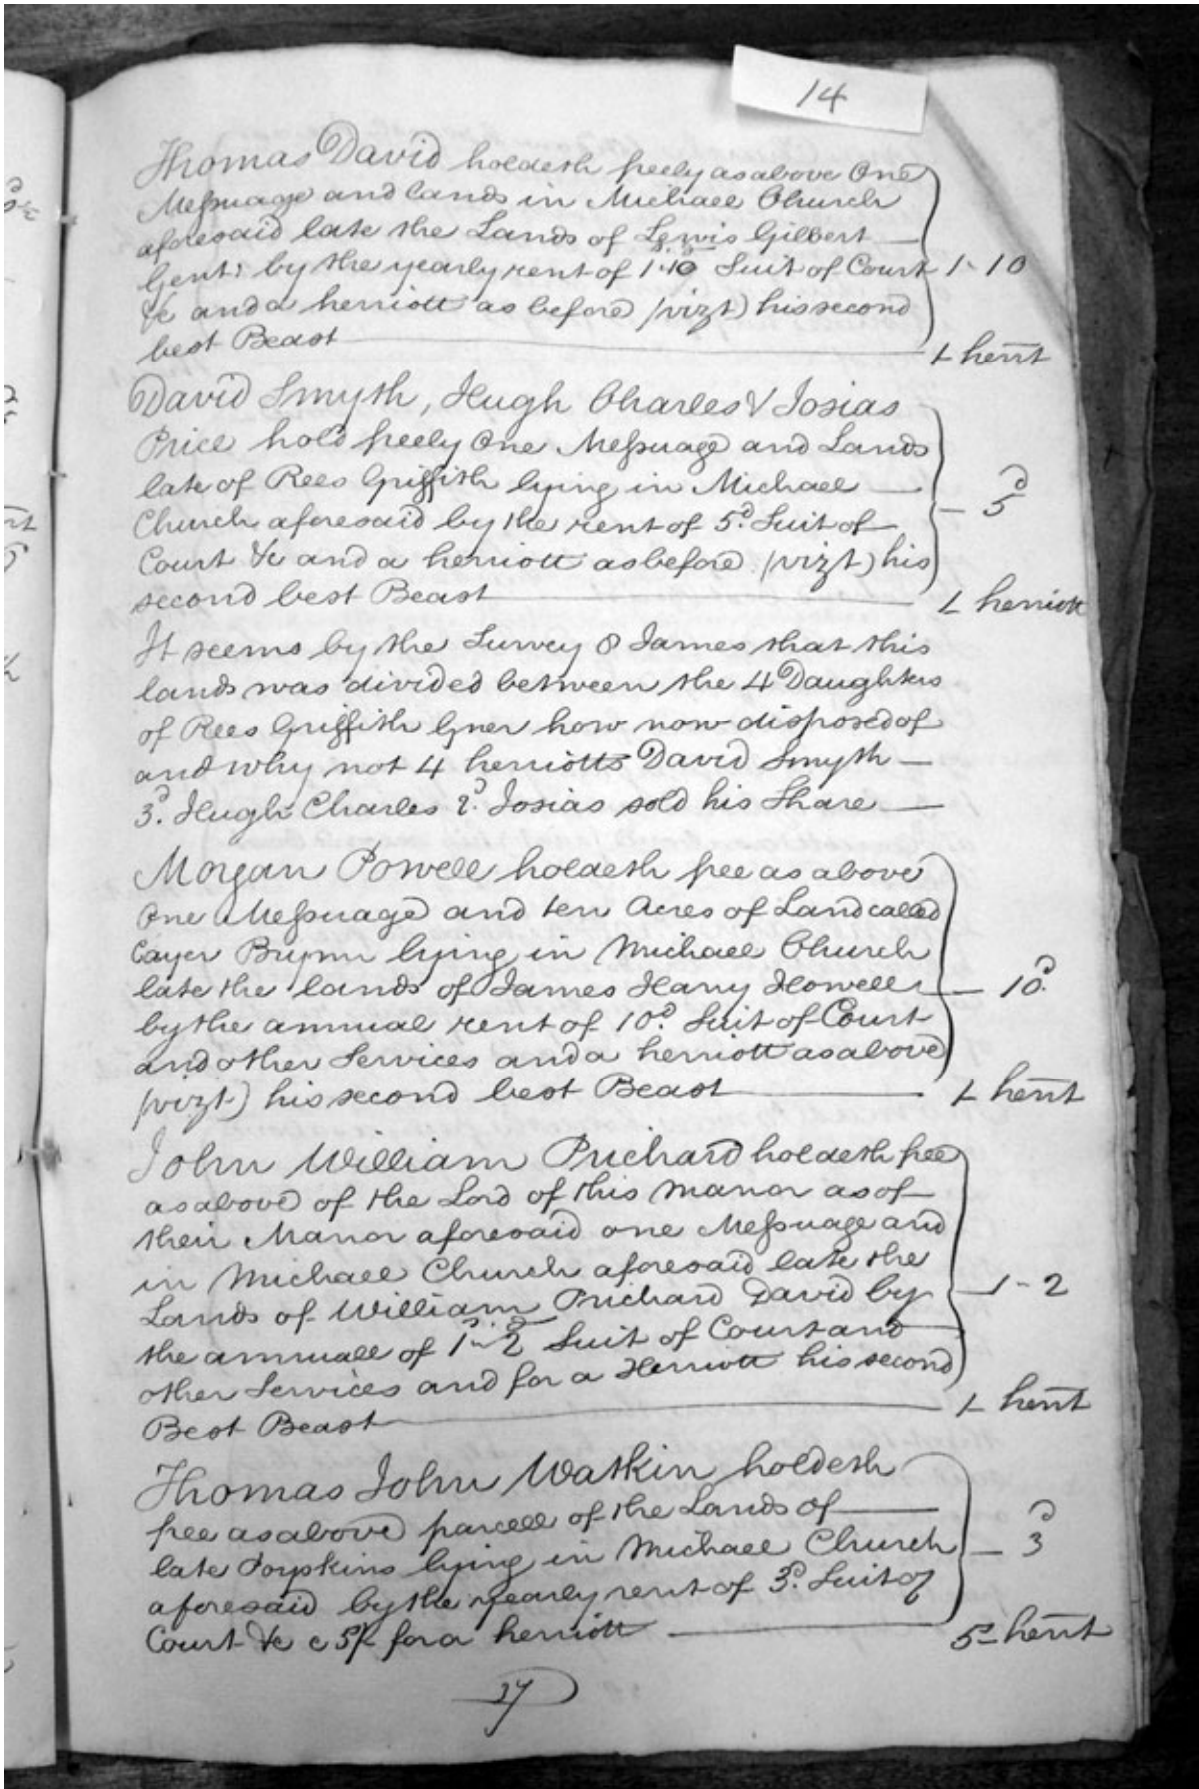 14
Thomas David holdeth freely as above One
Messuage and lands in Michaell Church
aforesaid late the Lands of Lewis Gilbert
Gent: by the yearly rent of 1s.10d Suit of Court 1 - 10
&c and a herriott as before (vizt) his second
best Beast 1 herrt
David Smyth, Hugh Charles & Josias
Price hold freely One Messuage and Lands
late of Rees Griffith lying in Michaell
Church aforesaid by the rent of 5d. Suit of 5d
Court &c and a herriott as before (vizt) his
second best Beast 1 herriott
It seems by the Survey 8 James that this
lands was divided between the 4 Daughters
of Rees Griffith Quer how now disposed of
and why not 4 herriotts David Smyth
3d. Hugh Charles 2d. Josias sold his Share
Morgan Powell holdeth free as above
One Messuage and ten Acres of Land called
Cayer Brynn lying in Michaell Church
late the lands of James Harry Howell 10d.
by the annual rent of 10d. Suit of Court
and other Services and a herriott as above
(vizt) his second best Beast 1 herrt
John William Prichard holdeth free
as above of the Lord of this manor as of
their Manor aforesaid one Messuage and
in Michaell Church aforesaid late the
Lands of William Prichard David by 1 - 2
the annuall of 1s - 2d Suit of Court and
other Services and for a Herriott his second
Best Beast 1 herrt
Thomas John Watkin holdeth
free as above parcell of the Lands of
late lying in Michaell Church 3d
aforesaid by the yearly rent of 3d. Suit of
Court &c 5/- for a herriott 5s herrt